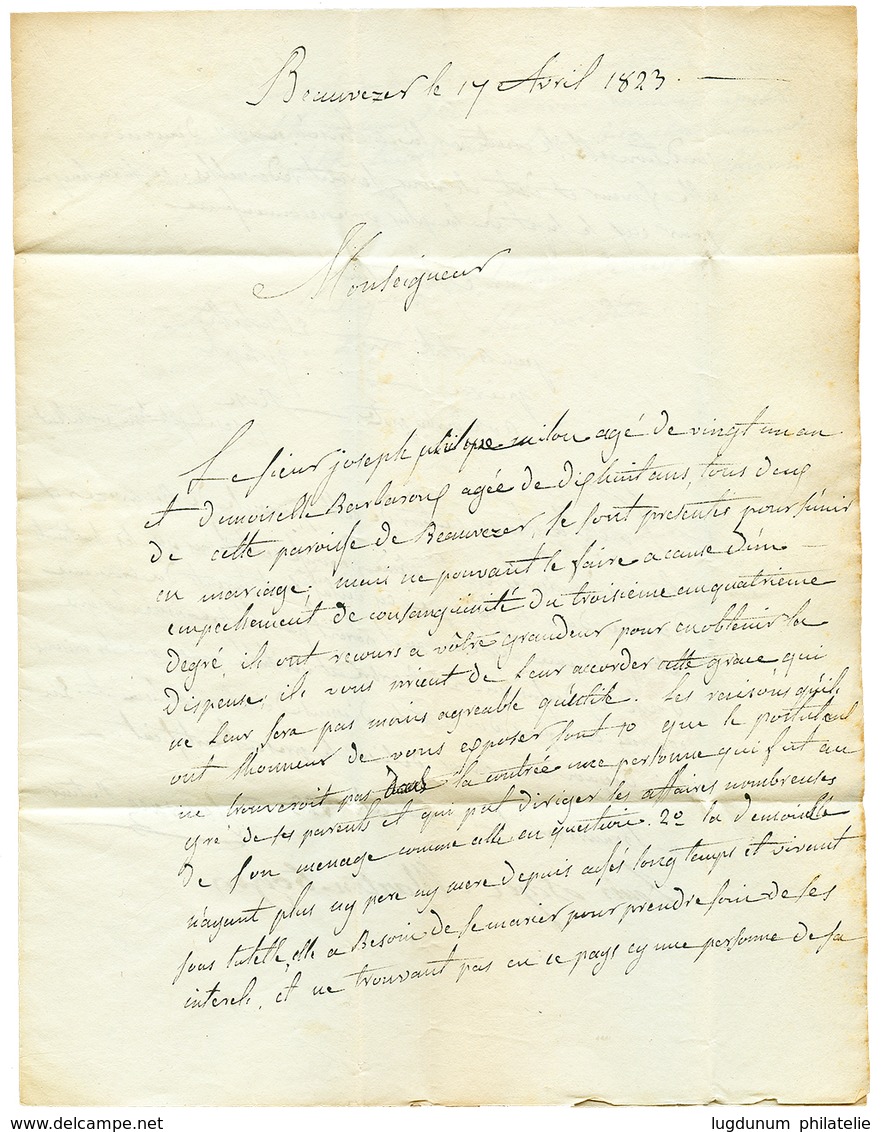 Beauvezer le 17 Avril 1823.
Monseigneur
Le sieur joseph philipe milou agé de vingt un an
et demoiselle Barbaroux agée de dixhuit ans, tous deux
de cette paroisse de Beauvezer, se sont presentés pour s'unir
en mariage; mais ne pouvant le faire a cause d'un
empechement de consanguinité du troisieme au quatrieme
degré, ils ont recours a vôtre grandeur pour en obtenir la
dispense; ils vous prient de leur accorder cette grace qui
ne leur sera pas moins agreable qu'utile. Les raisons qu'ils
ont l'honneur de vous exposer sont 1o que le postulant
ne trouveroit pas dans la contrée une personne qui fut au
gré de ses parents et qui put diriger les affaires nombreuses
de son menage comme celle en question. 2o la demoiselle
n'ayant plus ny pere ny mere depuis assés longtemps et vivant
sous tutelle, elle a Besoin de se marier pour prendre soin de ses
interets, et ne trouvant pas en ce pays cy une personne de sa
lugdunum philatelie